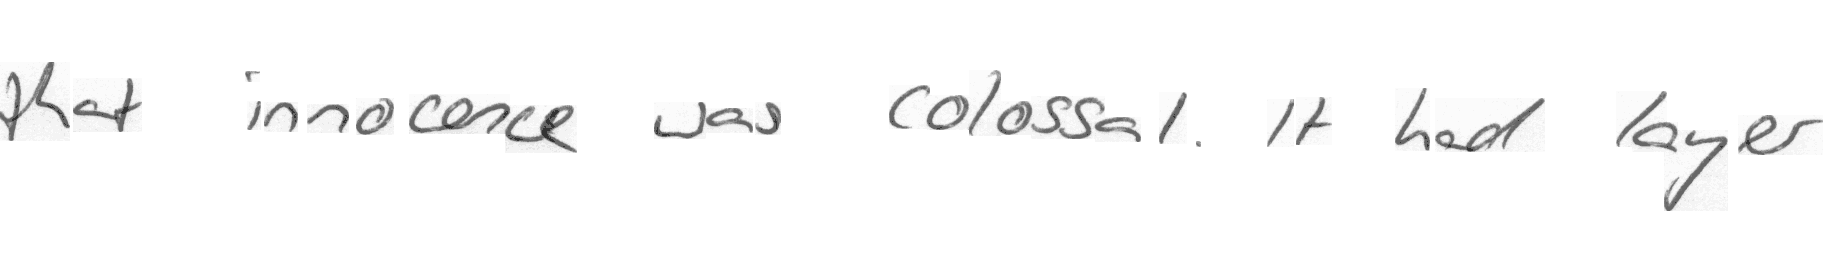 that innocence was colossal. It had layer